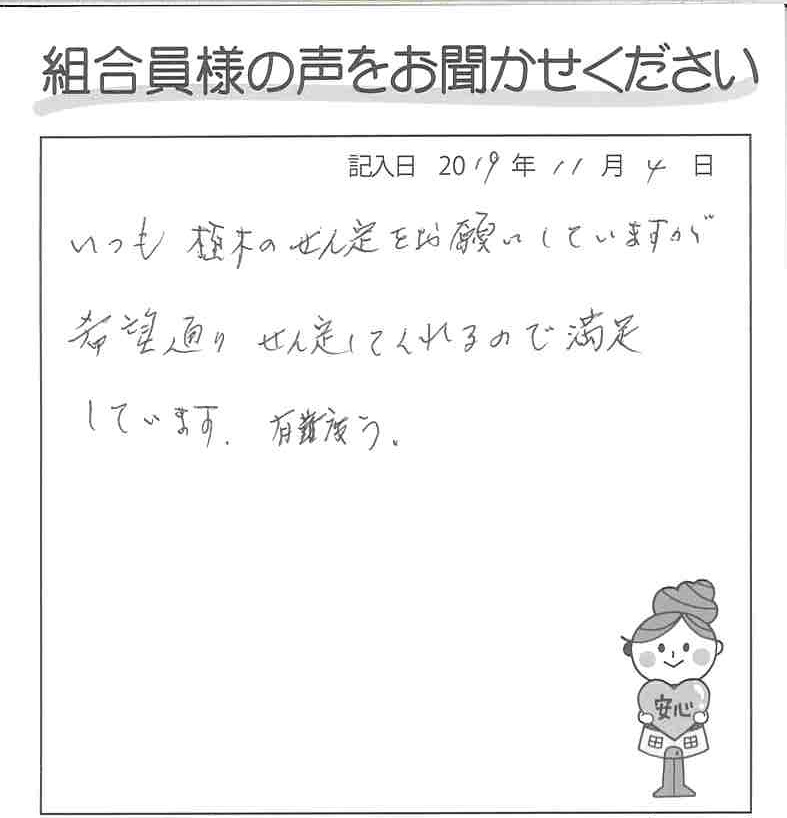 組合員様の声をお聞かせください
記入日 2019年 11月 4日
いつも 植木のせん定をお願いしていますが
希望通り せん定してくれるので満足
しています. 有難度う。
安心